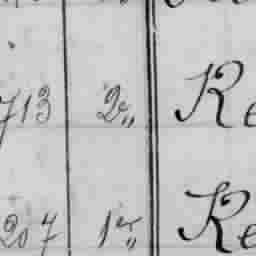 713 2e„ Re
207 1er„ Re